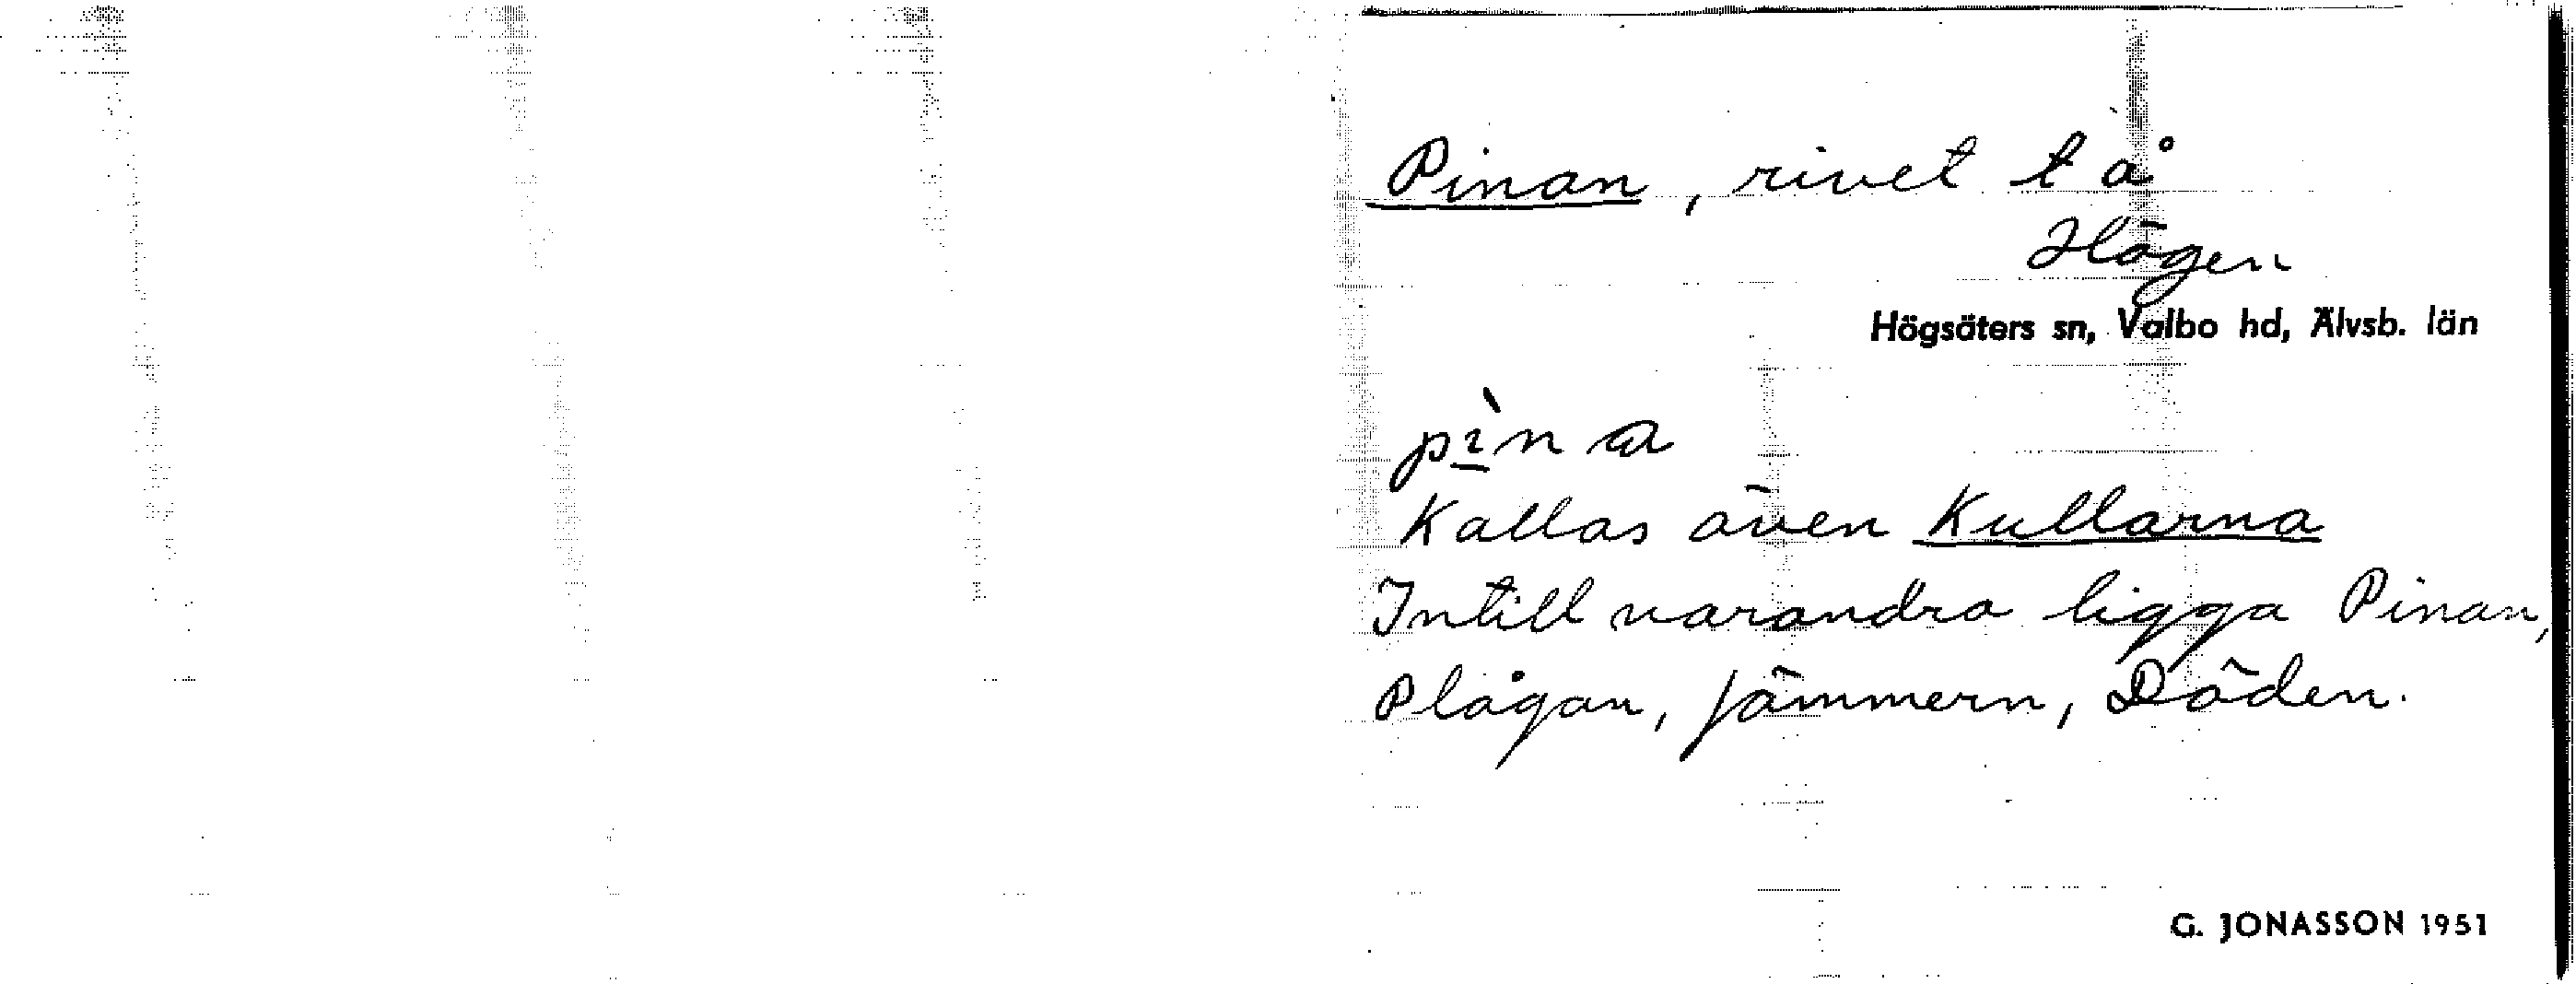 Pinan, rivet t å
Högen
Högsäters sn, Valbo hd, Älvsb. län
pìna
Kallas även Kullarna
Intill varandra ligga Pinan,
Plågan, Jämmern, Döden.
G. JONASSON 1951